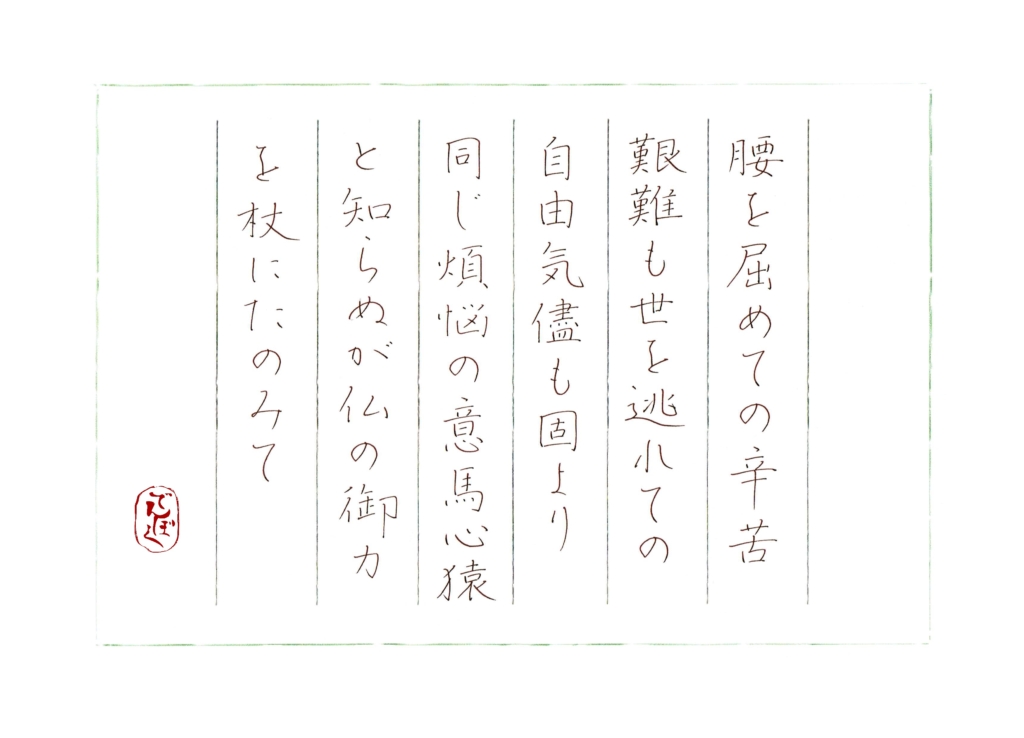 腰を屈めての辛苦
艱難も世を逃れての
自由気儘も固より
同じ煩悩の意馬心猿
と知らぬが仏の御力
を杖にたのみて
でんぼく